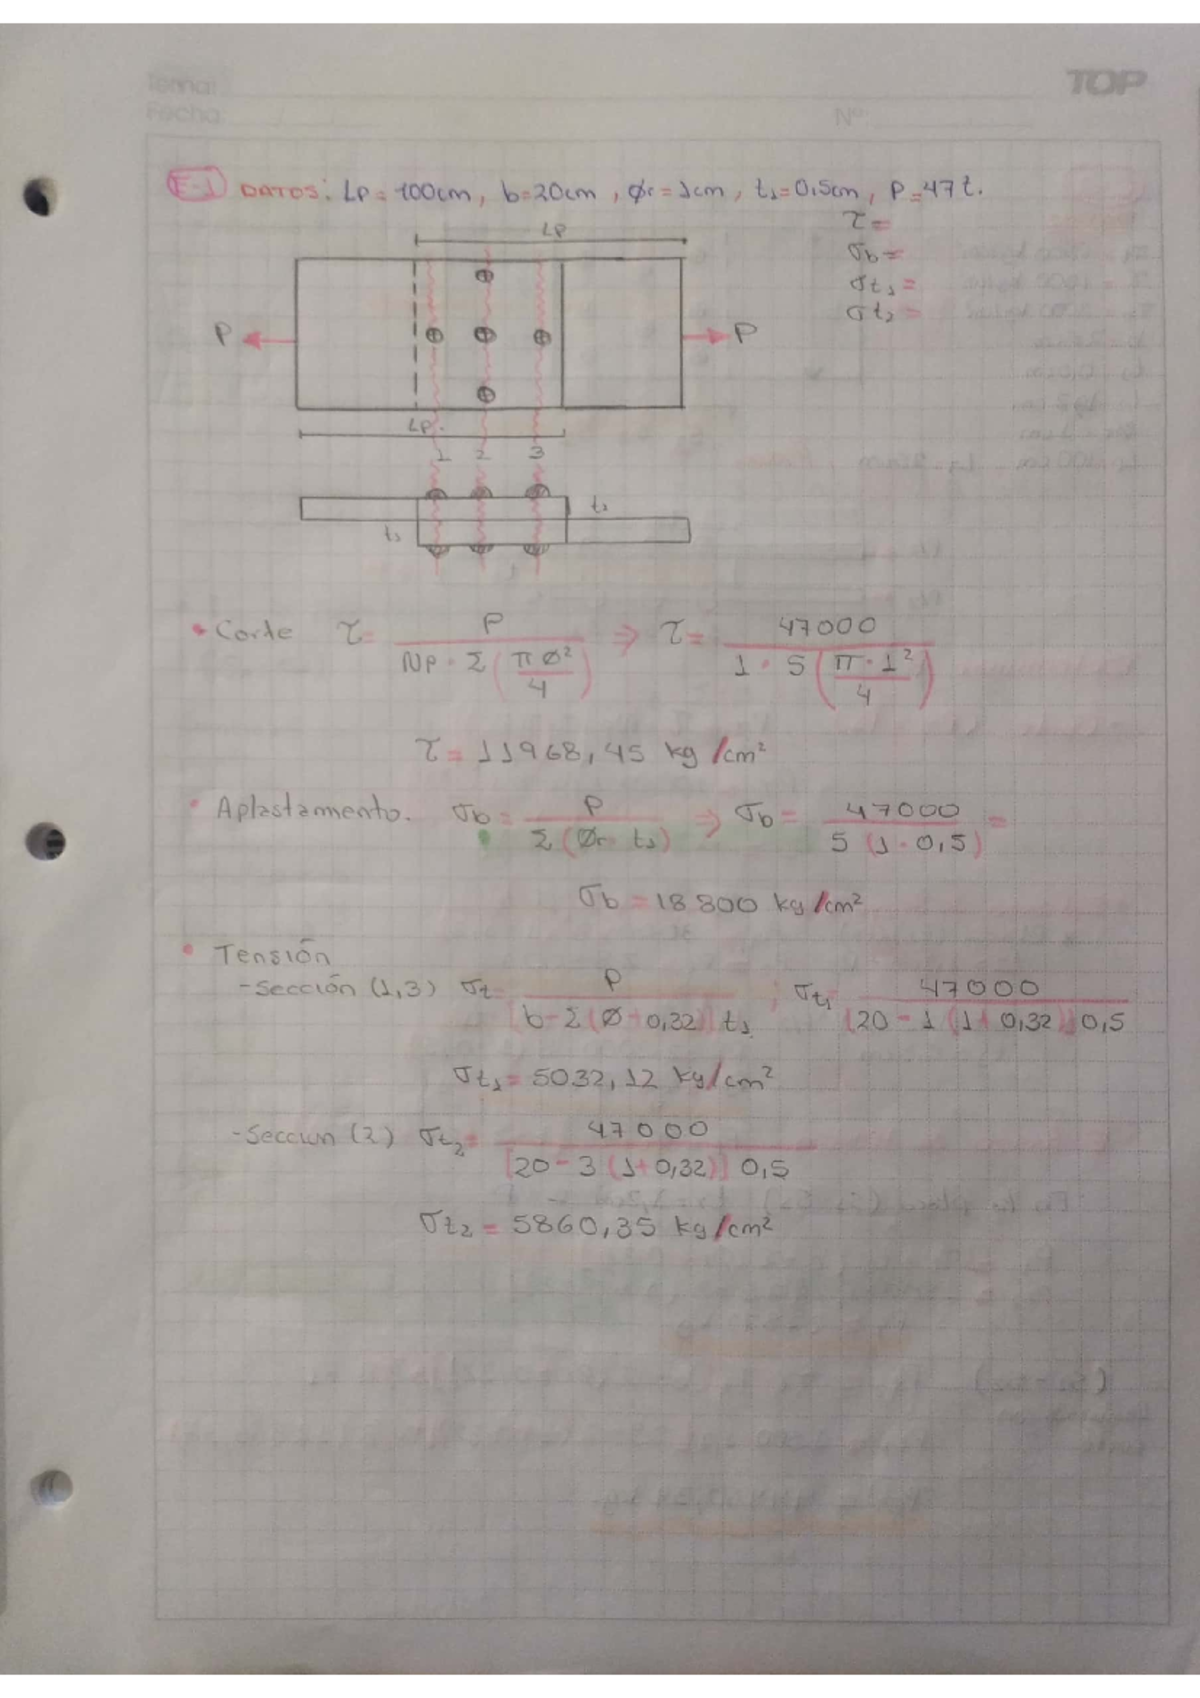 Tema:
TOP
Fecha:
Nº
E-1 DATOS: LP = 100cm, b=20cm, Ør=1cm, t₁=0,5cm, P=47t.
τ=
σb=
σt₁=
σt₂=
LP
P
P
LP.
1 2 3
t₁
t₁
• Corte τ= P / (NP · Σ (π Ø² / 4)) ⇒ τ= 47000 / (1 · 5 (π · 1² / 4))
τ= 11968,45 kg/cm²
• Aplastamento. σb = P / (Σ (Ør · t₁)) ⇒ σb = 47000 / (5 (1 · 0,5)) =
σb = 18800 kg/cm²
• Tensión
-Sección (1,3) σt = P / ([b-Σ(Ø+0,32)] t₁) ; σt₁= 47000 / ([20 - 1 (1+0,32)] 0,5)
σt₁= 5032,12 kg/cm²
-Seccion (2) σt₂= 47000 / ([20-3(1+0,32)] 0,5)
σt₂ = 5860,35 kg/cm²